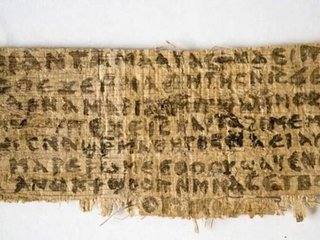 ⲉⲓ ⲁⲛ ⲧⲁⲙⲁⲁⲩ ⲁⲥϯ ⲛⲁⲉⲓ ⲡ
ⲡⲉϫⲉ ⲙⲙⲁⲑⲏⲧⲏⲥ ⲛⲓⲥ ϫⲉ ⲥ
ⲁⲣⲛⲁ ⲙⲁⲣⲓⲁⲙ ⲙⲡϣⲁ ⲙⲙⲟⲥ ⲁⲛ
ⲡⲉϫⲉ ⲓⲥ ⲛⲁⲩ ⲧⲁϩⲓⲙⲉ ⲙⲛ
ⲥⲛⲁϣⲣⲙⲁⲑⲏⲧⲏⲥ ⲛⲁⲉⲓ ⲁⲩⲱ
ⲙⲁⲣⲉⲣⲱⲙⲉ ⲉⲑⲟⲟⲩ ϣⲁϥⲉ ⲛⲉ
ⲁⲛⲟⲕ ϯϣⲟⲟⲡ ⲛⲙⲙⲁⲥ ⲉⲧⲃⲉ ⲡ